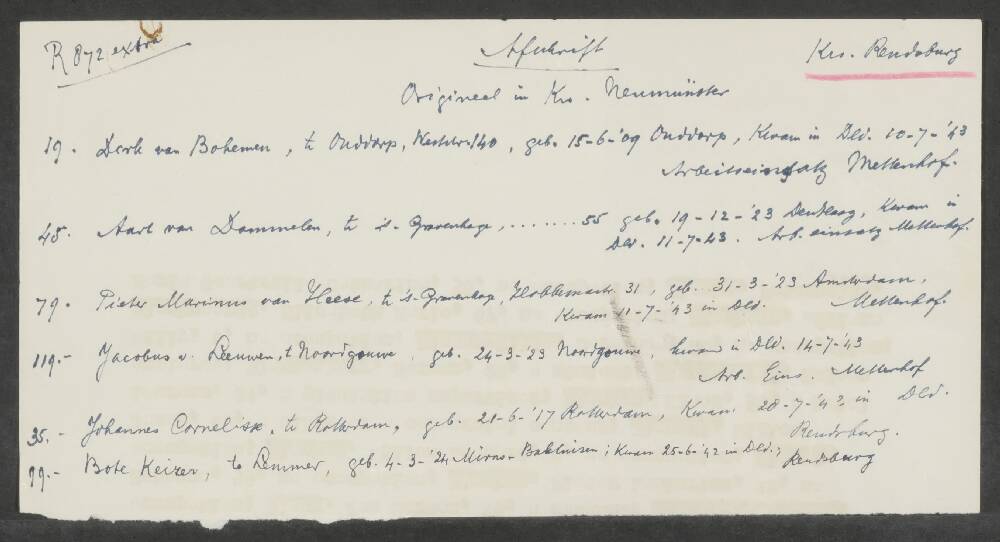 R 872 extra
Afschrift
Krs. Rendsburg
Origineel in Krs. Neumünster
19. Derk van Bohemen, te Ouddorp, 140, geb. 15-6-'09 Ouddorp, Kwam in Dld. 10-7-'43
Arbeitseinsatz Mettenhof.
45. Aart van Dommelen, te 's-Gravenhage, ........ 55 geb. 19-12-'23 Den Haag, Kwam in
Dld. 11-7-43. Arb. einsatz Mettenhof.
79. Pieter Marinus van Heese, te 's-Gravenhage, Hobbemastr. 31, geb. 31-3-'23 Amsterdam,
Kwam 11-7-'43 in Dld. Mettenhof.
119.- Jacobus v. Leeuwen, t Noordgouwe, geb. 24-3-'23 Noordgouwe, kwam in Dld. 14-7-'43
Arb. Eins. Mettenhof
35.- Johannes Cornelisse, te Rotterdam, geb. 21-6-'17 Rotterdam, Kwam 28-7-'42 in Dld.
Rendsburg.
99.- Bote Keizer, te Lemmer, geb. 4-3-'24 Mirns-Bakhuizen; Kwam 25-6-'42 in Dld.;
Rendsburg